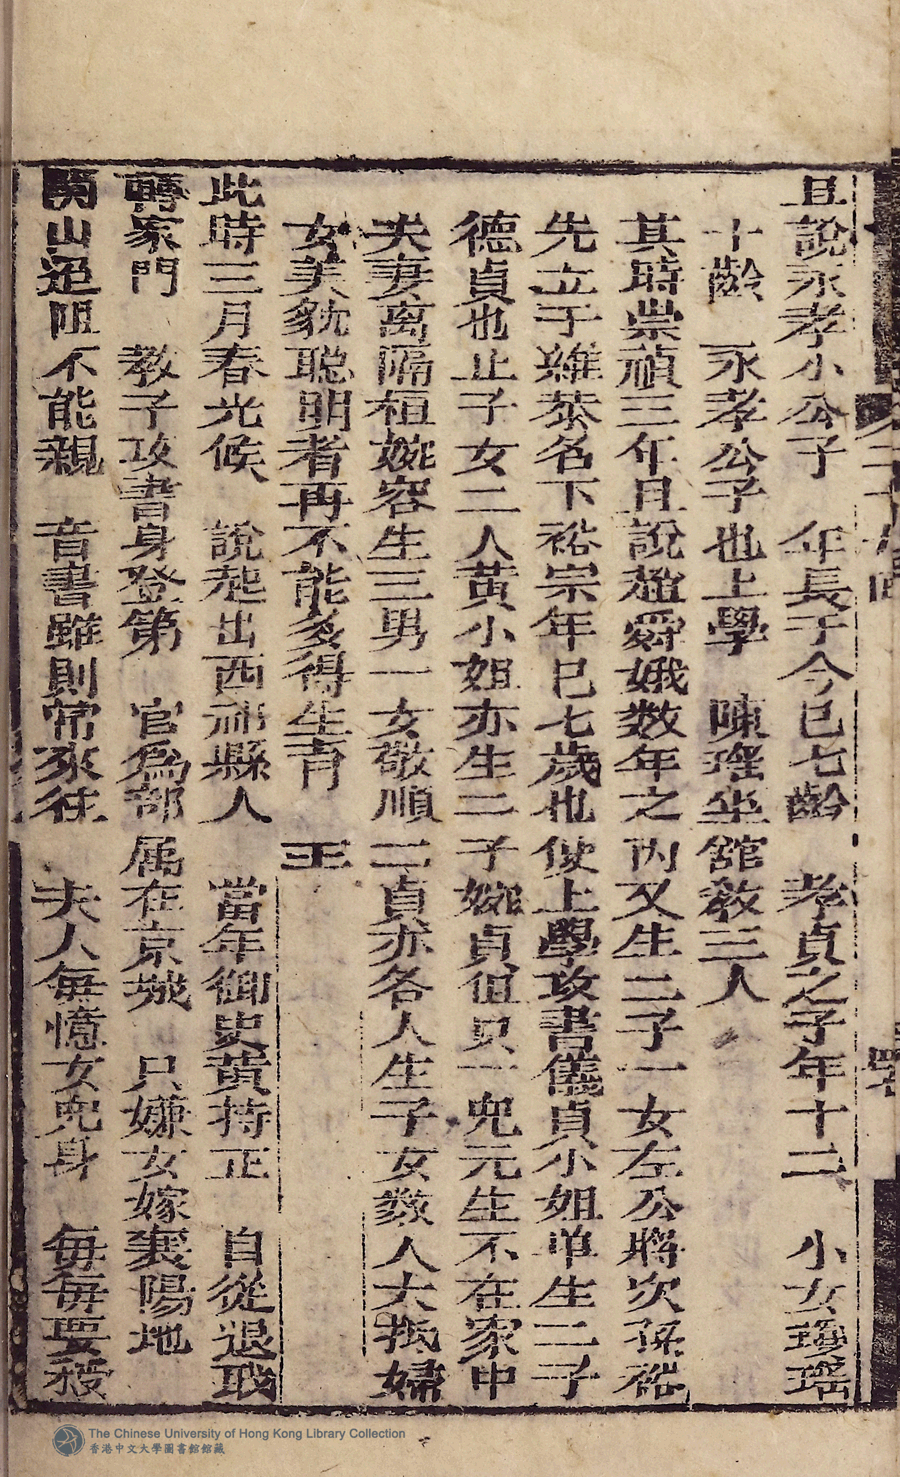 且說永孝小公子　年長于今已七齡　孝貞之子年十二　小女瓊瑶
十齡　永孝公子也上學　陳瑤坐舘敎三人
其時崇禎三年且說趙舜娥数年之內又生二子一女左公將次孫裕
先立于雞恭名下裕宗年已七歲也使上學攻書儀貞小姐单生二子
德貞也止子女二人黄小姐亦生二子婉貞但只一兒元生不在家中
夫妻离隔桓婉容生三男一女敬順二貞亦各人生子女数人大抵婦
女美貌聪明者再不能多得生育　王
此時三月春光候　說起出西祁縣人　當年御史黄持正　自從退戝
轉家門　教子攻書身登第　官為部属在京城　只嫌女嫁襄陽地
関山迢阻不能親　音書雖則常來往　夫人每憶女兒身　每每要殺
The Chinese University of Hong Kong Library Collection
香港中文大學圖書館館藏